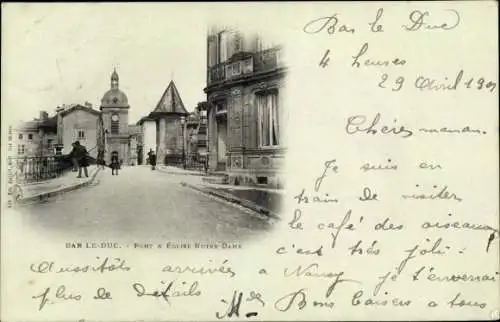 Bar le Duc
4 heures
29 Avril 190
Chère maman
Je suis en
train de visiter
le café des oiseaux
c'est très joli.
Aussitôt arrivée à Nancy je t'enverrai
plus de détails
Bons baisers a tous
BAR LE-DUC. - PONT & ÉGLISE NOTRE DAME